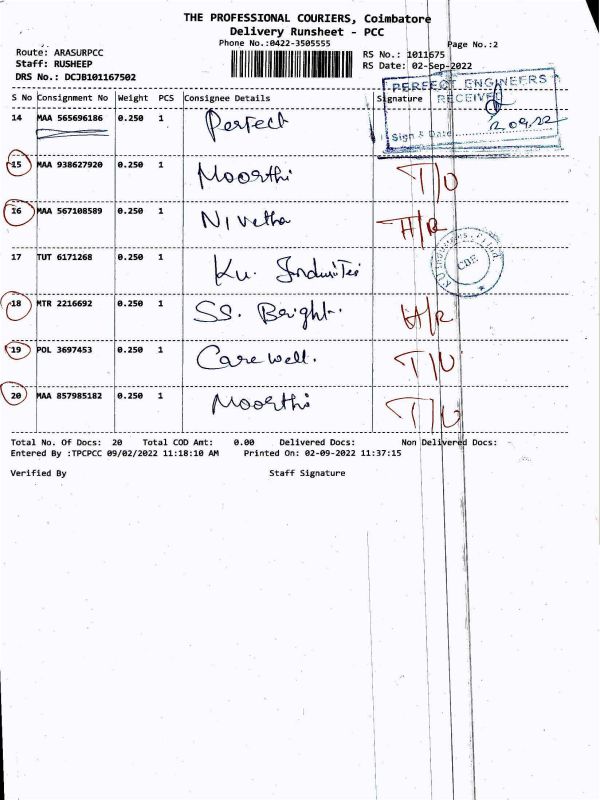 THE PROFESSIONAL COURIERS, Coimbatore
Delivery Runsheet - PCC
Phone No.:0422-3505555
Page No.:2
Route: ARASURPCC
RS No.: 1011675
Staff: RUSHEEP
RS Date: 02-Sep-2022
DRS No.: DCJB101167502
PERFECT ENGINEERS
RECEIVED
Sign & Date
2.09.22
S No Consignment No Weight PCS Consignee Details Signature
14 MAA 565696186 0.250 1 Perfect
15 MAA 938627920 0.250 1 Moorthi T/U
16 MAA 567108589 0.250 1 Nivetha H/R
17 TUT 6171268 0.250 1 Ku. Industries
CBE
18 MTR 2216692 0.250 1 SS. Bright. H/R
19 POL 3697453 0.250 1 Care well. T/U
20 MAA 857985182 0.250 1 Moorthi T/U
Total No. Of Docs: 20 Total COD Amt: 0.00 Delivered Docs: Non Delivered Docs:
Entered By :TPCPCC 09/02/2022 11:18:10 AM Printed On: 02-09-2022 11:37:15
Verified By Staff Signature